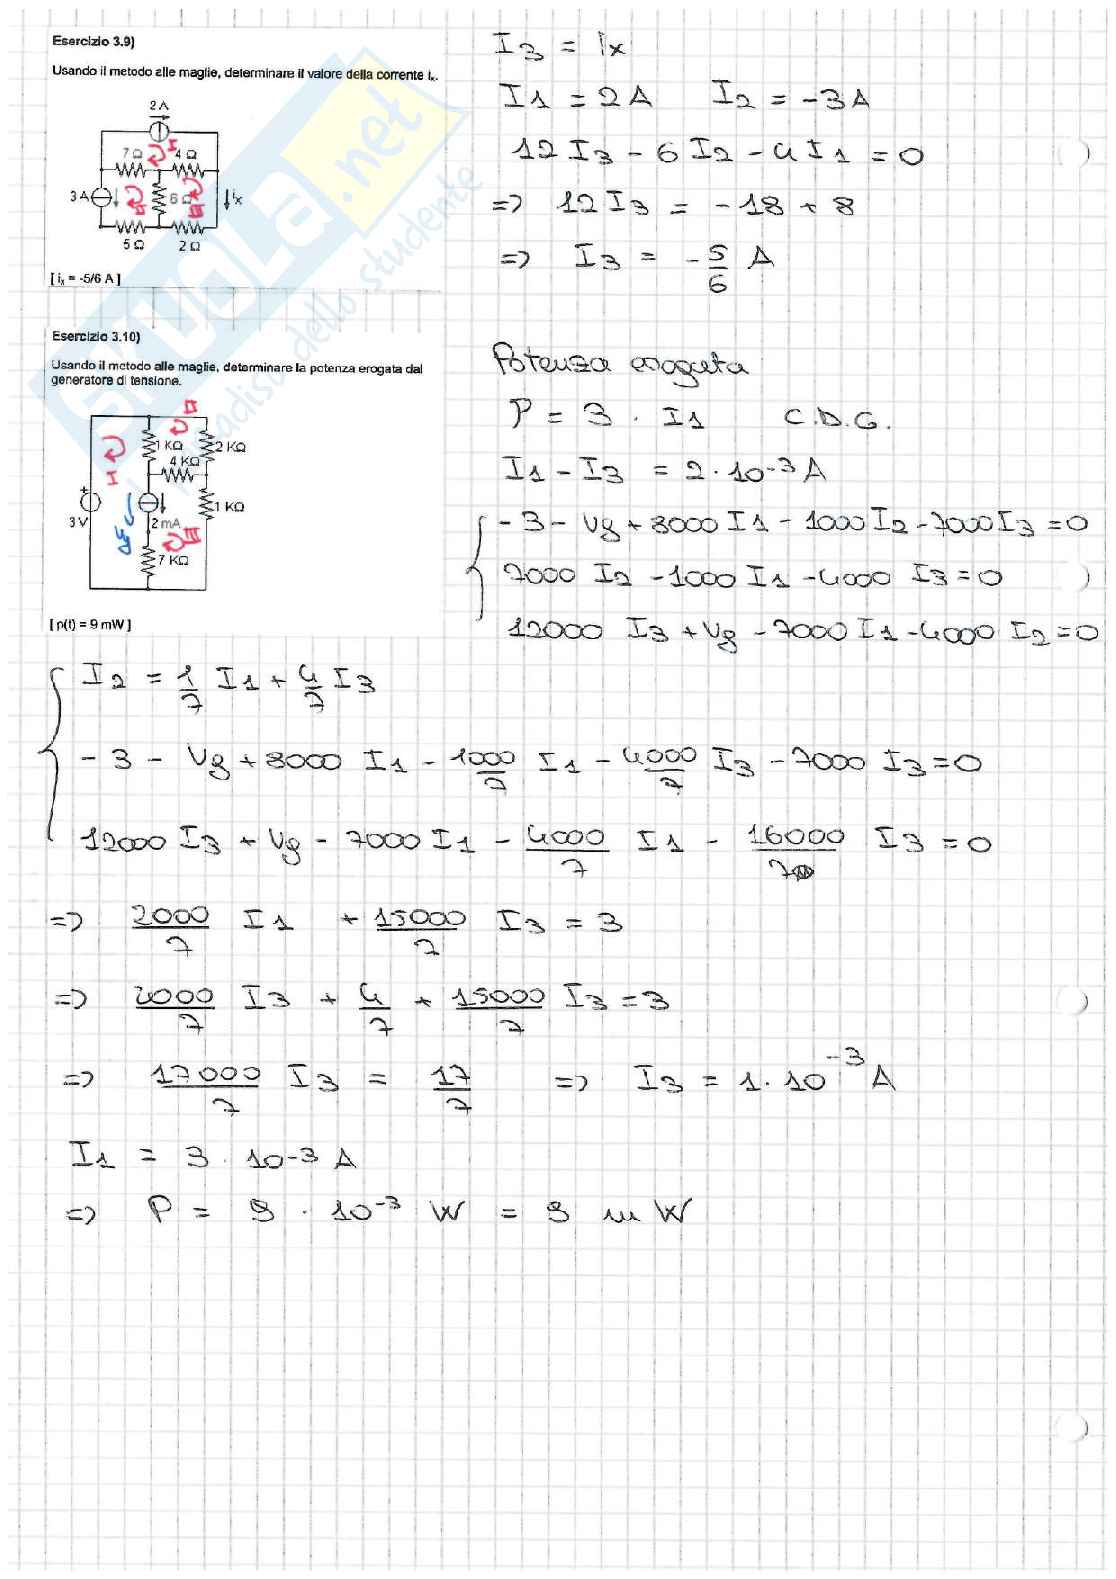 Esercizio 3.9)
Usando il metodo alle maglie, determinare il valore della corrente iₓ.
2 A
7 Ω 4 Ω
I
3 A 6 Ω iₓ
II III
5 Ω 2 Ω
[ iₓ = -5/6 A ]
I3 = ix
I1 = 2A I2 = -3A
12 I3 - 6 I2 - 4 I1 = 0
=> 12 I3 = -18 + 8
=> I3 = -5/6 A
Esercizio 3.10)
Usando il metodo alle maglie, determinare la potenza erogata dal
generatore di tensione.
II
1 KΩ 2 KΩ
4 KΩ
I
+
3 V 2 mA 1 KΩ
III
7 KΩ
[ p(t) = 9 mW ]
Potenza erogata
P = 3 · I1 C.D.G.
I1 - I3 = 2 · 10⁻³ A
-3 - Vg + 8000 I1 - 1000 I2 - 7000 I3 = 0
7000 I2 - 1000 I1 - 4000 I3 = 0
12000 I3 + Vg - 7000 I1 - 4000 I2 = 0
I2 = 1/7 I1 + 4/7 I3
-3 - Vg + 8000 I1 - 1000/7 I1 - 4000/7 I3 - 7000 I3 = 0
12000 I3 + Vg - 7000 I1 - 4000/7 I1 - 16000/7 I3 = 0
=> 2000/7 I1 + 15000/7 I3 = 3
=> 2000/7 I3 + 4/7 + 15000/7 I3 = 3
=> 17000/7 I3 = 17/7 => I3 = 1 · 10⁻³ A
I1 = 3 · 10⁻³ A
=> P = 9 · 10⁻³ W = 9 mW
SKUOLA.net
il paradiso dello studente